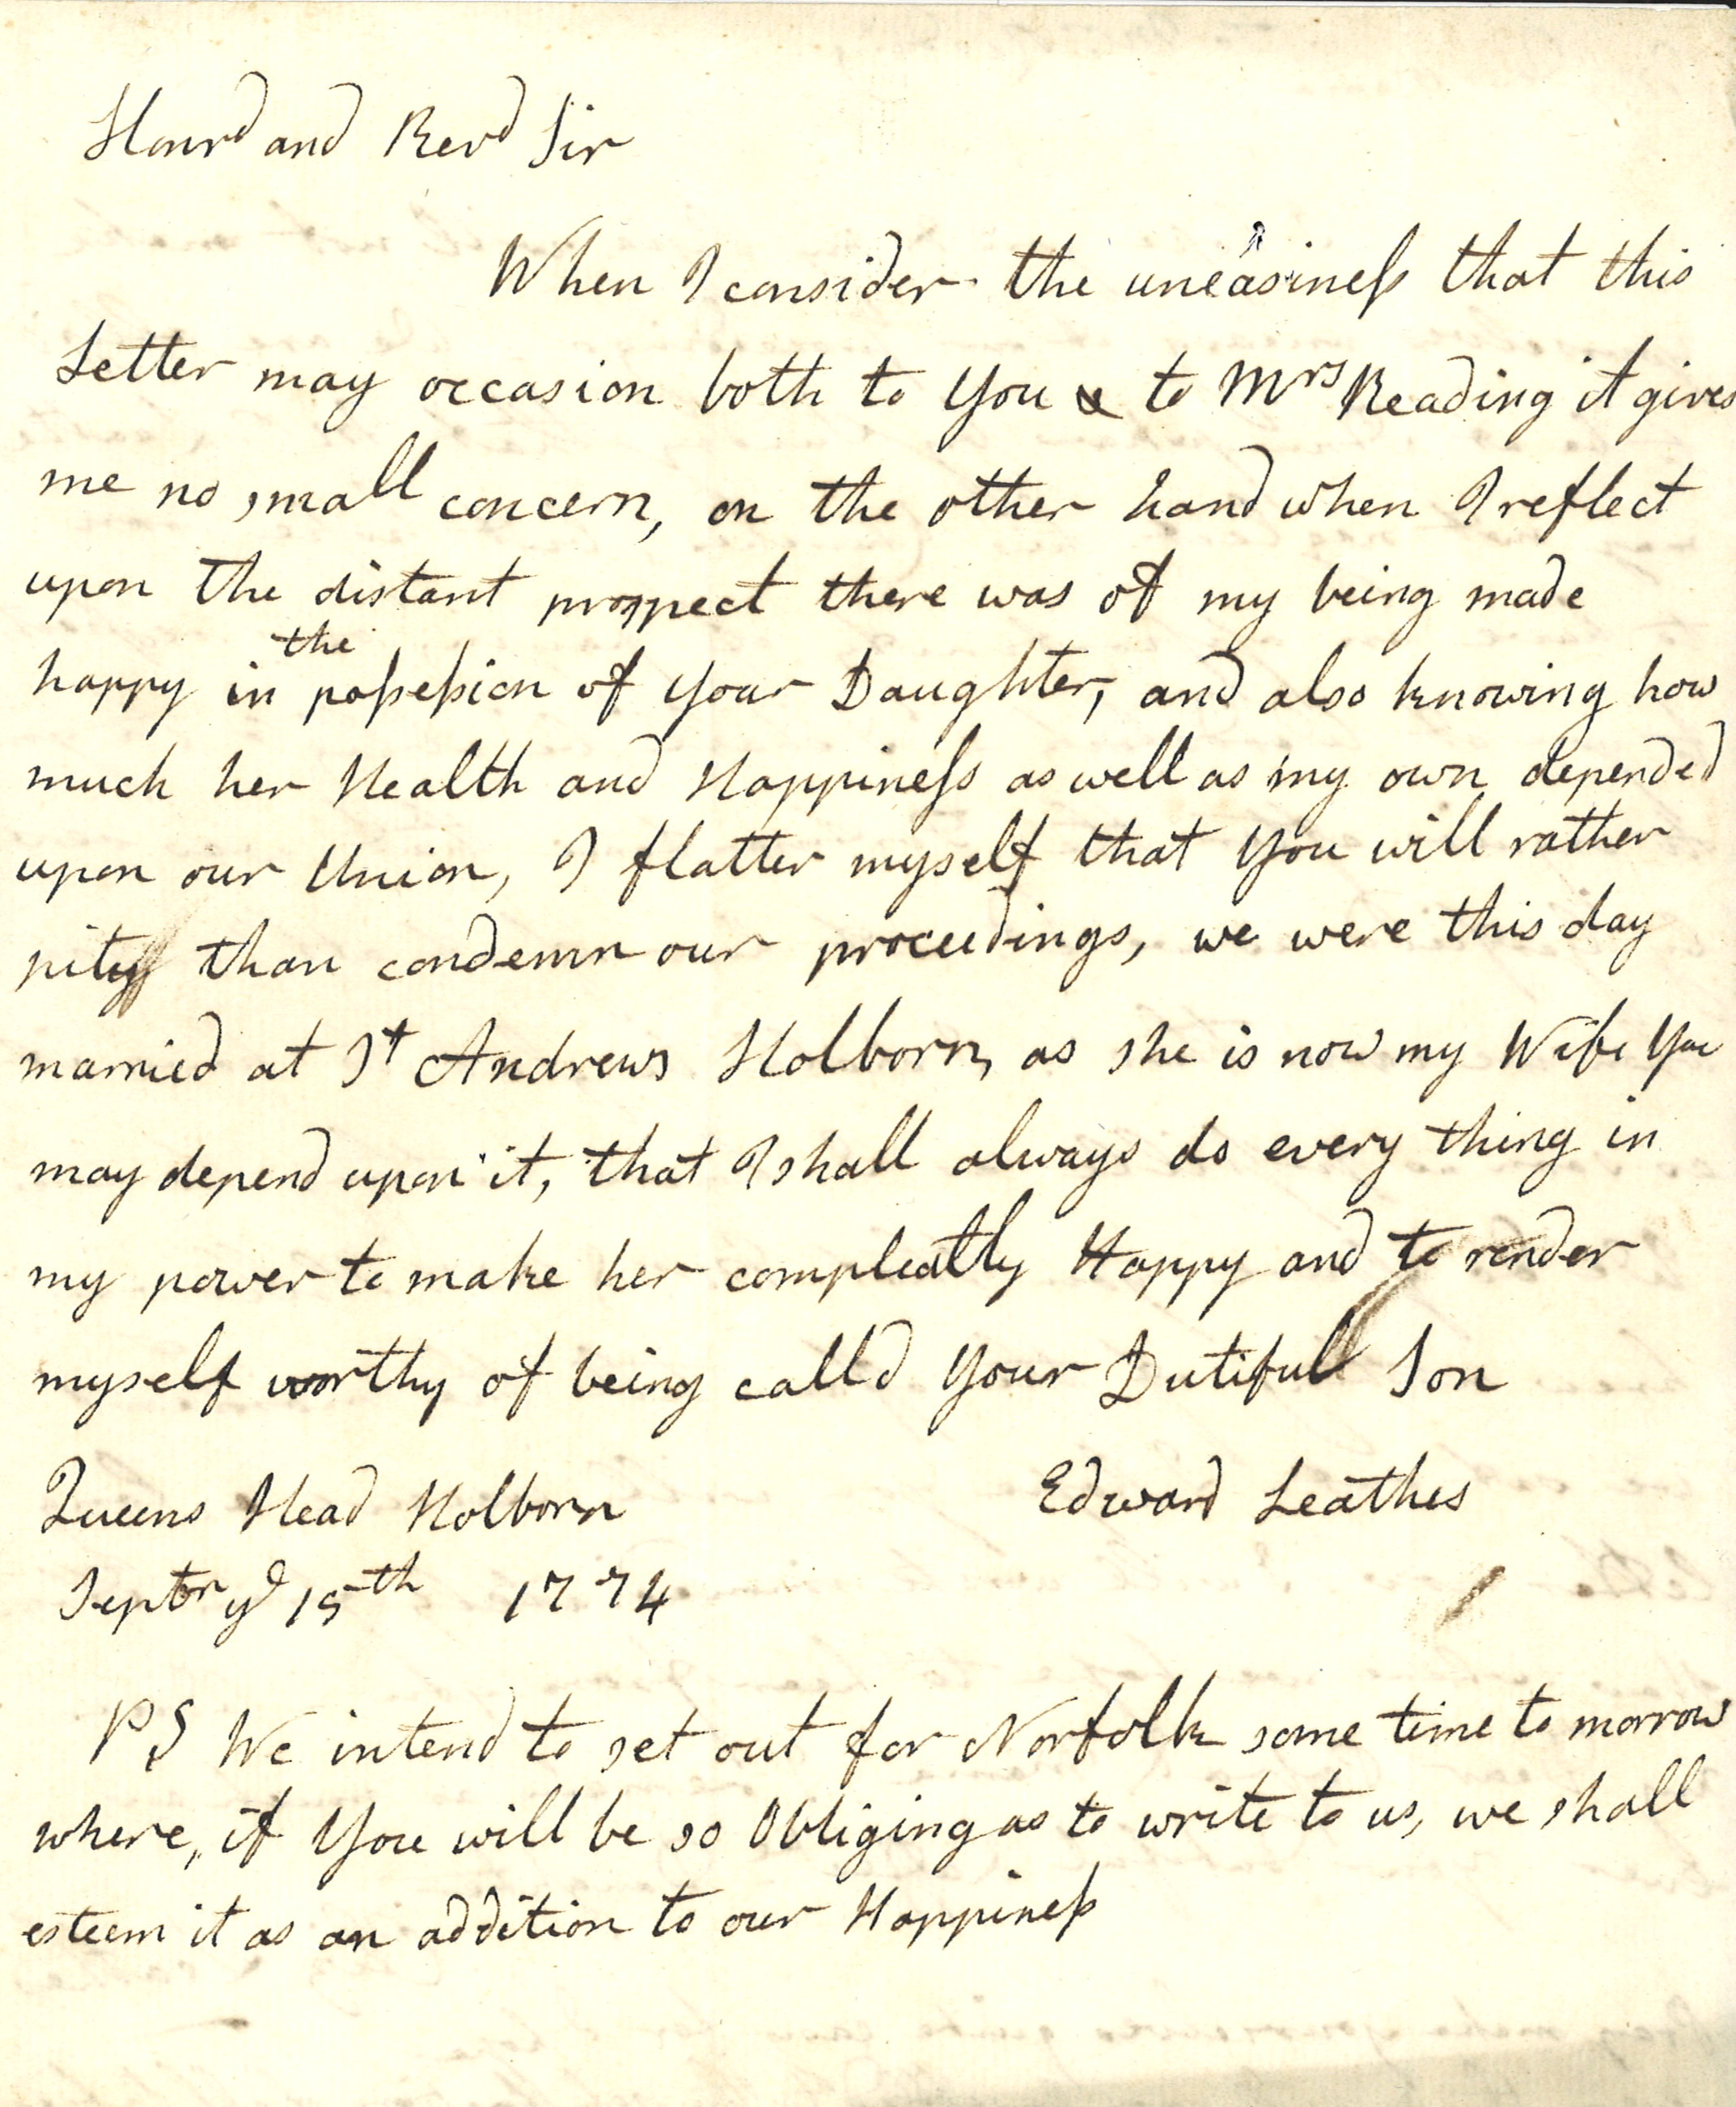 Honrd and Revd Sir
When I consider the uneasineſs that this
Letter may occasion both to You & to Mrs Reading it gives
me no small concern, on the other hand when I reflect
upon the distant prospect there was of my being made
happy in the poſseſsion of your Daughter, and also knowing how
much her Health and Happineſs as well as my own depended
upon our Union, I flatter myself that You will rather
pity than condemn our proceedings, we were this day
married at St Andrews Holborn, as she is now my Wife You
may depend upon it, that I shall always do every thing in
my power to make her compleatly Happy and to render
myself worthy of being calld Your Dutifull Son
Edward Leathes
Queens Head Holborn
Septbr ye 15th 1774
PS We intend to set out for Norfolk some time to morrow
where, if You will be so Obliging as to write to us, we shall
esteem it as an addition to our Happineſs